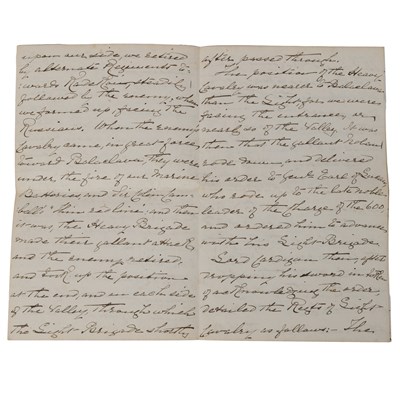 upon our side, we retired
by alternate Regiments to-
wards Kadikoi, steadily
followed by the enemy, when
we formed up, facing the
Russians. When the enemy's
Cavalry came, in great force,
toward Balaclava, they were
under the fire of our Marine
Batteries, and Sir Colin Camp-
bell's "thin red line" and then
it was, the Heavy Brigade
made their gallant attack
and the enemy retired,
and took up the position
at the end, and on each side
of the Valley, through which
the Light Brigade shortly
after passed through.
The position of the Heavy
Cavalry was nearer to Balaclava
than the Light, for we were
facing the entrance, or
nearly so of the Valley. It was
then that the gallant Nolan
rode down, and delivered
his order to you Earl of Lucan
who rode up to the late noble
leader of the Charge of the 600
and ordered him to advance
with his Light Brigade.
Lord Cardigan then, after
dropping his sword in
of acknowledging the order
detailed the Regts of Light
Cavalry as follows:- The